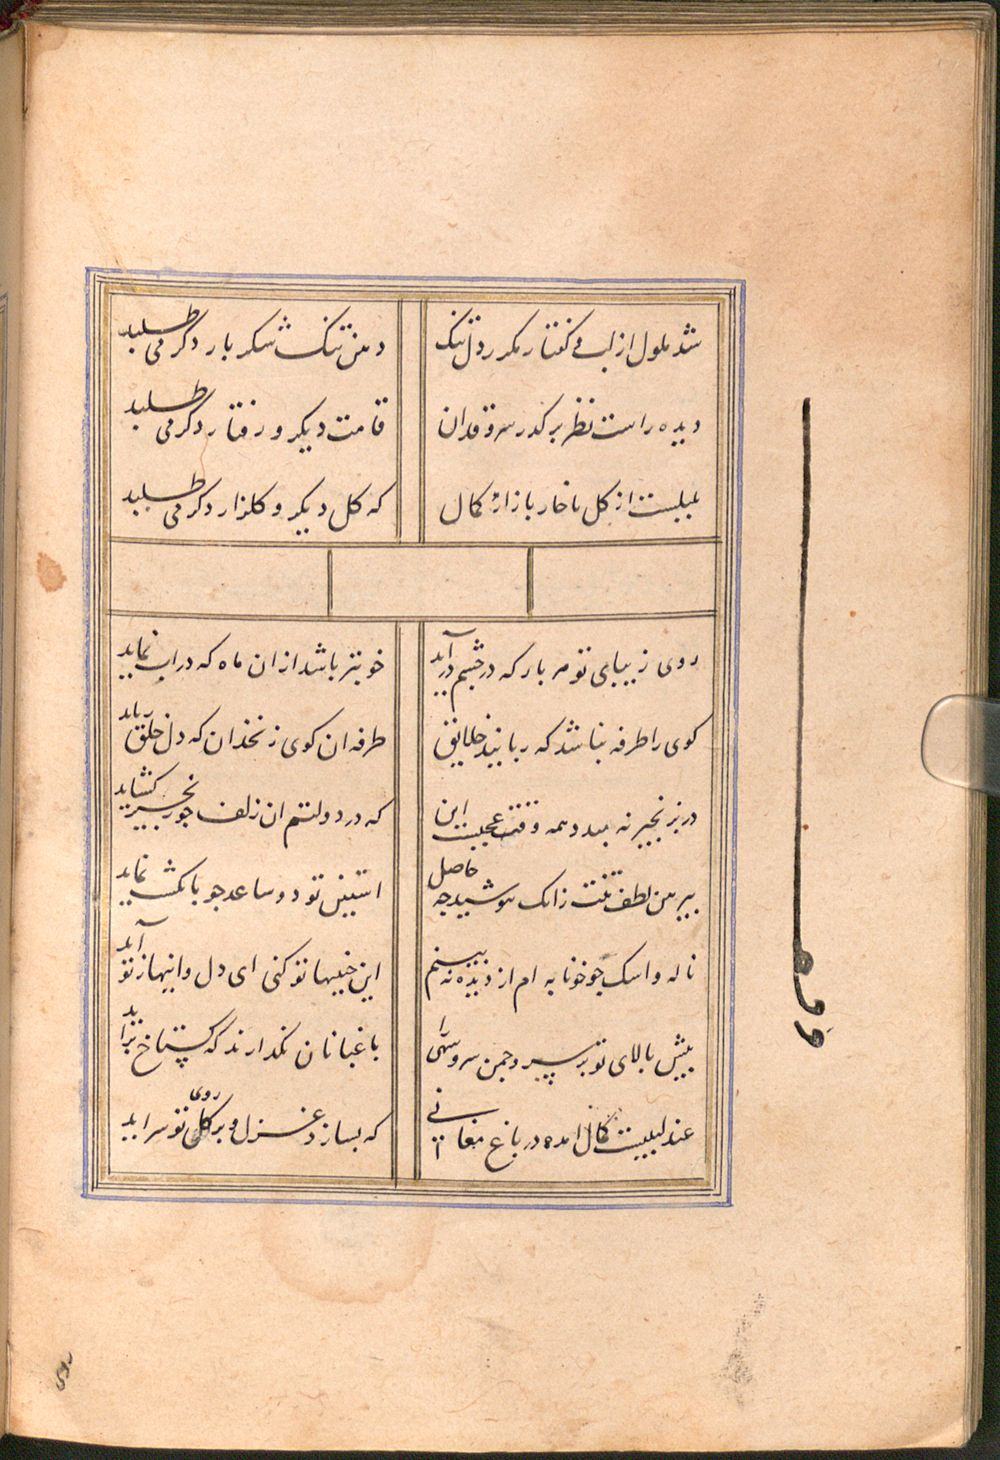 شد ملول از لب و گفتار مکرر دل تنک
دهن تنک شکر بار دکر می طلبد
دیده راست نظر بر کدر سرو قدان
قامت دیکر و رفتار دکر می طلبد
بلبلیست از کل ناخار بازار کمال
که کل دیکر و کلزار دکر می طلبد
روی زیبای تو هر بار که در چشم در آید
خوبتر باشد از ان ماه که در اب نماید
کوی را طرفه نباشد که ربایند خلایق
طرفه ان کوی زنخدان که دل خلق رباید
در بزنجیر نه بندد همه وقت عجبست این
که در دولتم ان زلف چو زنجیر کشاید
پیرهن لطف تنت زانک بپوشید چه حاصل
استینش تو دو ساعد چو بالکشت نماید
ناله و اسک چو خونابه ام از دیده نه بینم
این خیبها تو کنی ای دل و اینها ز تو آید
پیش بالای تو بر سرو چمن سرو سهی را
باغبانان نکدارند که کستاخ بر آید
عندلیبیست کمال امده در باغ معانی
که بسازد غزل و بر کل روی تو سراید